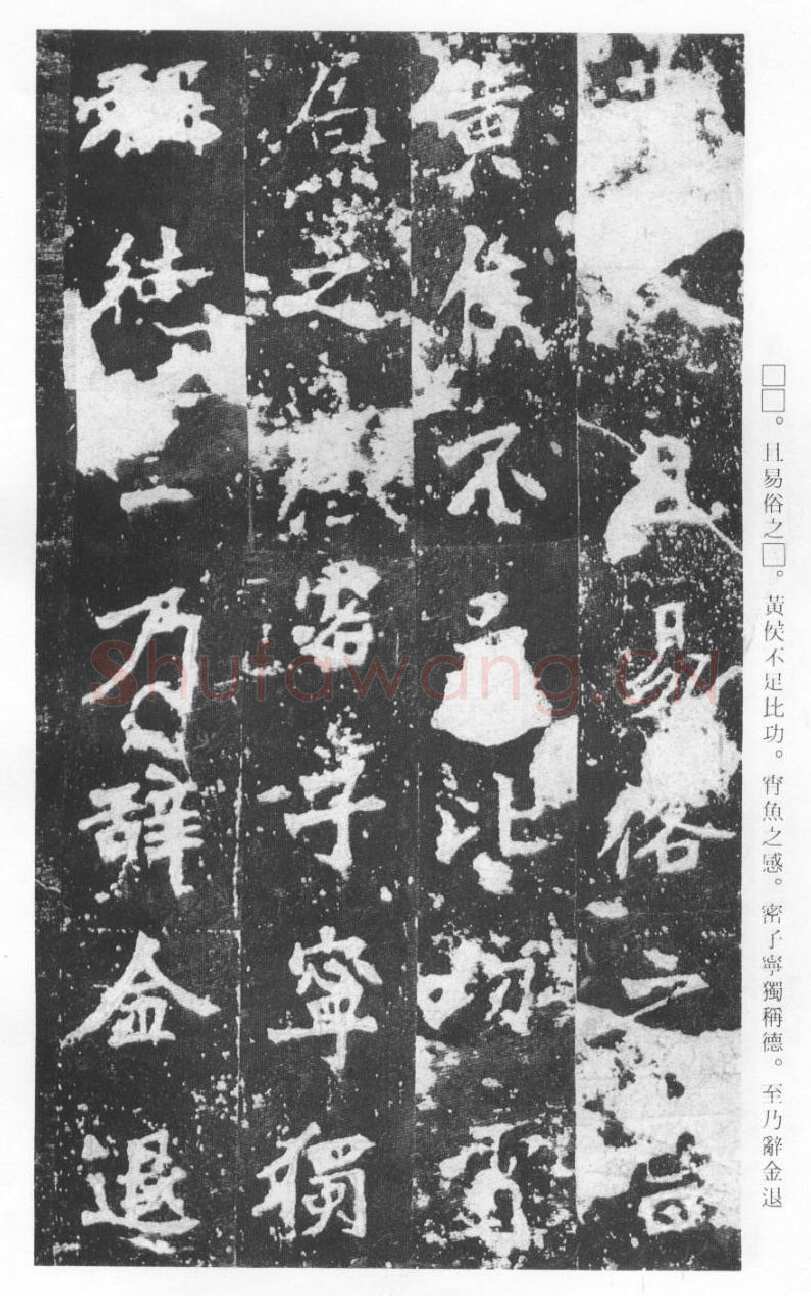 且易俗之
黄侯不足比功宵
魚之感密子寧獨
稱德至乃辭金退
□□。且易俗之□。黃侯不足比功。宵魚之感。密子寧獨稱德。至乃辭金退
Shufawang.CN